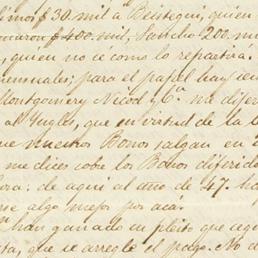 limos $30. mil a Beistegui, quien
maron $400. mil, Sancho 200. mi
, quien no sé como lo repartirá.
ensuales; para el papel hay cien
Montgomery Nicod y Cª. me difer
al Ynglés, que en virtud de la
ue nuestros Bonos salgan en
me dices sobre los Bonos diferido
ora: de aquí al año de 47. ha
se algo mejor por acá.
han ganado en pleito que
ta, que se arregle el pago. No